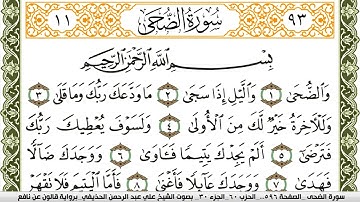 ٩٣ سُورَةُ الضُّحَىٰ ١١
بِسْمِ اللَّهِ الرَّحْمَٰنِ الرَّحِيمِ
وَالضُّحَىٰ ١ وَاللَّيْلِ إِذَا سَجَىٰ ٢ مَا وَدَّعَكَ رَبُّكَ وَمَا قَلَىٰ ٣
وَلَلْآخِرَةُ خَيْرٌ لَّكَ مِنَ الْأُولَىٰ ٤ وَلَسَوْفَ يُعْطِيكَ رَبُّكَ
فَتَرْضَىٰ ٥ أَلَمْ يَجِدْكَ يَتِيمًا فَـَٔاوَىٰ ٦ وَوَجَدَكَ ضَالًّا
فَهَدَىٰ ٧ وَوَجَدَكَ عَآئِلًا فَأَغْنَىٰ ٨ فَأَمَّا الْيَتِيمَ فَلَا تَقْهَرْ
سورة الضحى .. الصفحة ٥٩٦.. الحزب ٦٠.. الجزء ٣٠ .. بصوت الشيخ علي عبد الرحمن الحذيفي.. برواية قالون عن نافع